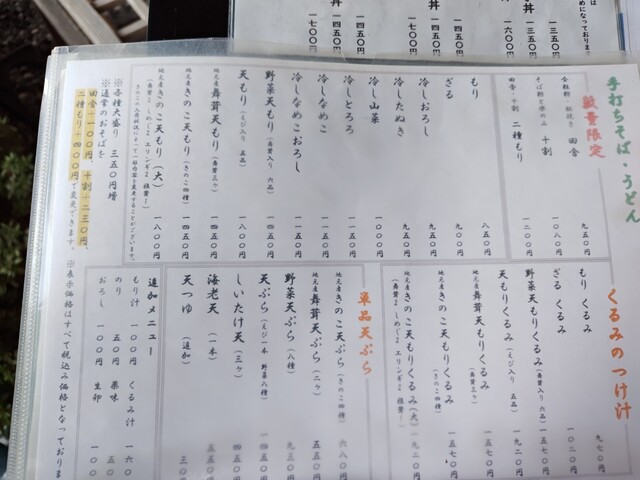 手打ちそば・うどん
数量限定
田舎 九五〇円
十割 一〇八〇円
田舎・十割 二種もり 一二〇〇円
もり 八五〇円
ざる 九五〇円
冷しおろし 九五〇円
冷したぬき 九五〇円
冷し山菜 一〇〇〇円
冷しとろろ
冷しなめこ
冷しなめこおろし
野菜天もり(舞茸入り 六品) 一四五〇円
天もり(えび入り 五品) 一八〇〇円
地元産 舞茸天もり(舞茸三ヶ) 一四五〇円
地元産 きのこ天もり(きのこ四種) 一四五〇円
地元産 きのこ天もり(大) 一八〇〇円
※各種大盛り 三五〇円増
※通常のおそばを
田舎+一〇〇円、十割+二三〇円、
二種もり+四〇〇円で変更できます。
くるみのつけ汁
もりくるみ 九七〇円
ざるくるみ 一〇二〇円
野菜天もりくるみ(舞茸入り 六品) 一五七〇円
天もりくるみ(えび入り 五品) 一九二〇円
地元産 舞茸天もりくるみ(舞茸三ヶ) 一五七〇円
地元産 きのこ天もりくるみ(きのこ四種) 一五七〇円
地元産 きのこ天もりくるみ(大) 一九二〇円
単品天ぷら
地元産 きのこ天ぷら(きのこ四種) 六八〇円
地元産 舞茸天ぷら(二ヶ) 五五〇円
野菜天ぷら(八種) 九五〇円
天ぷら(えび一本 野菜八種)
しいたけ天(三ヶ) 四五〇円
海老天(一本)
天つゆ(追加)
追加メニュー
もり汁 一〇〇円 くるみ汁
のり 五〇円 薬味
おろし 一〇〇円 生卵
※表示価格はすべて税込み価格となっておりま